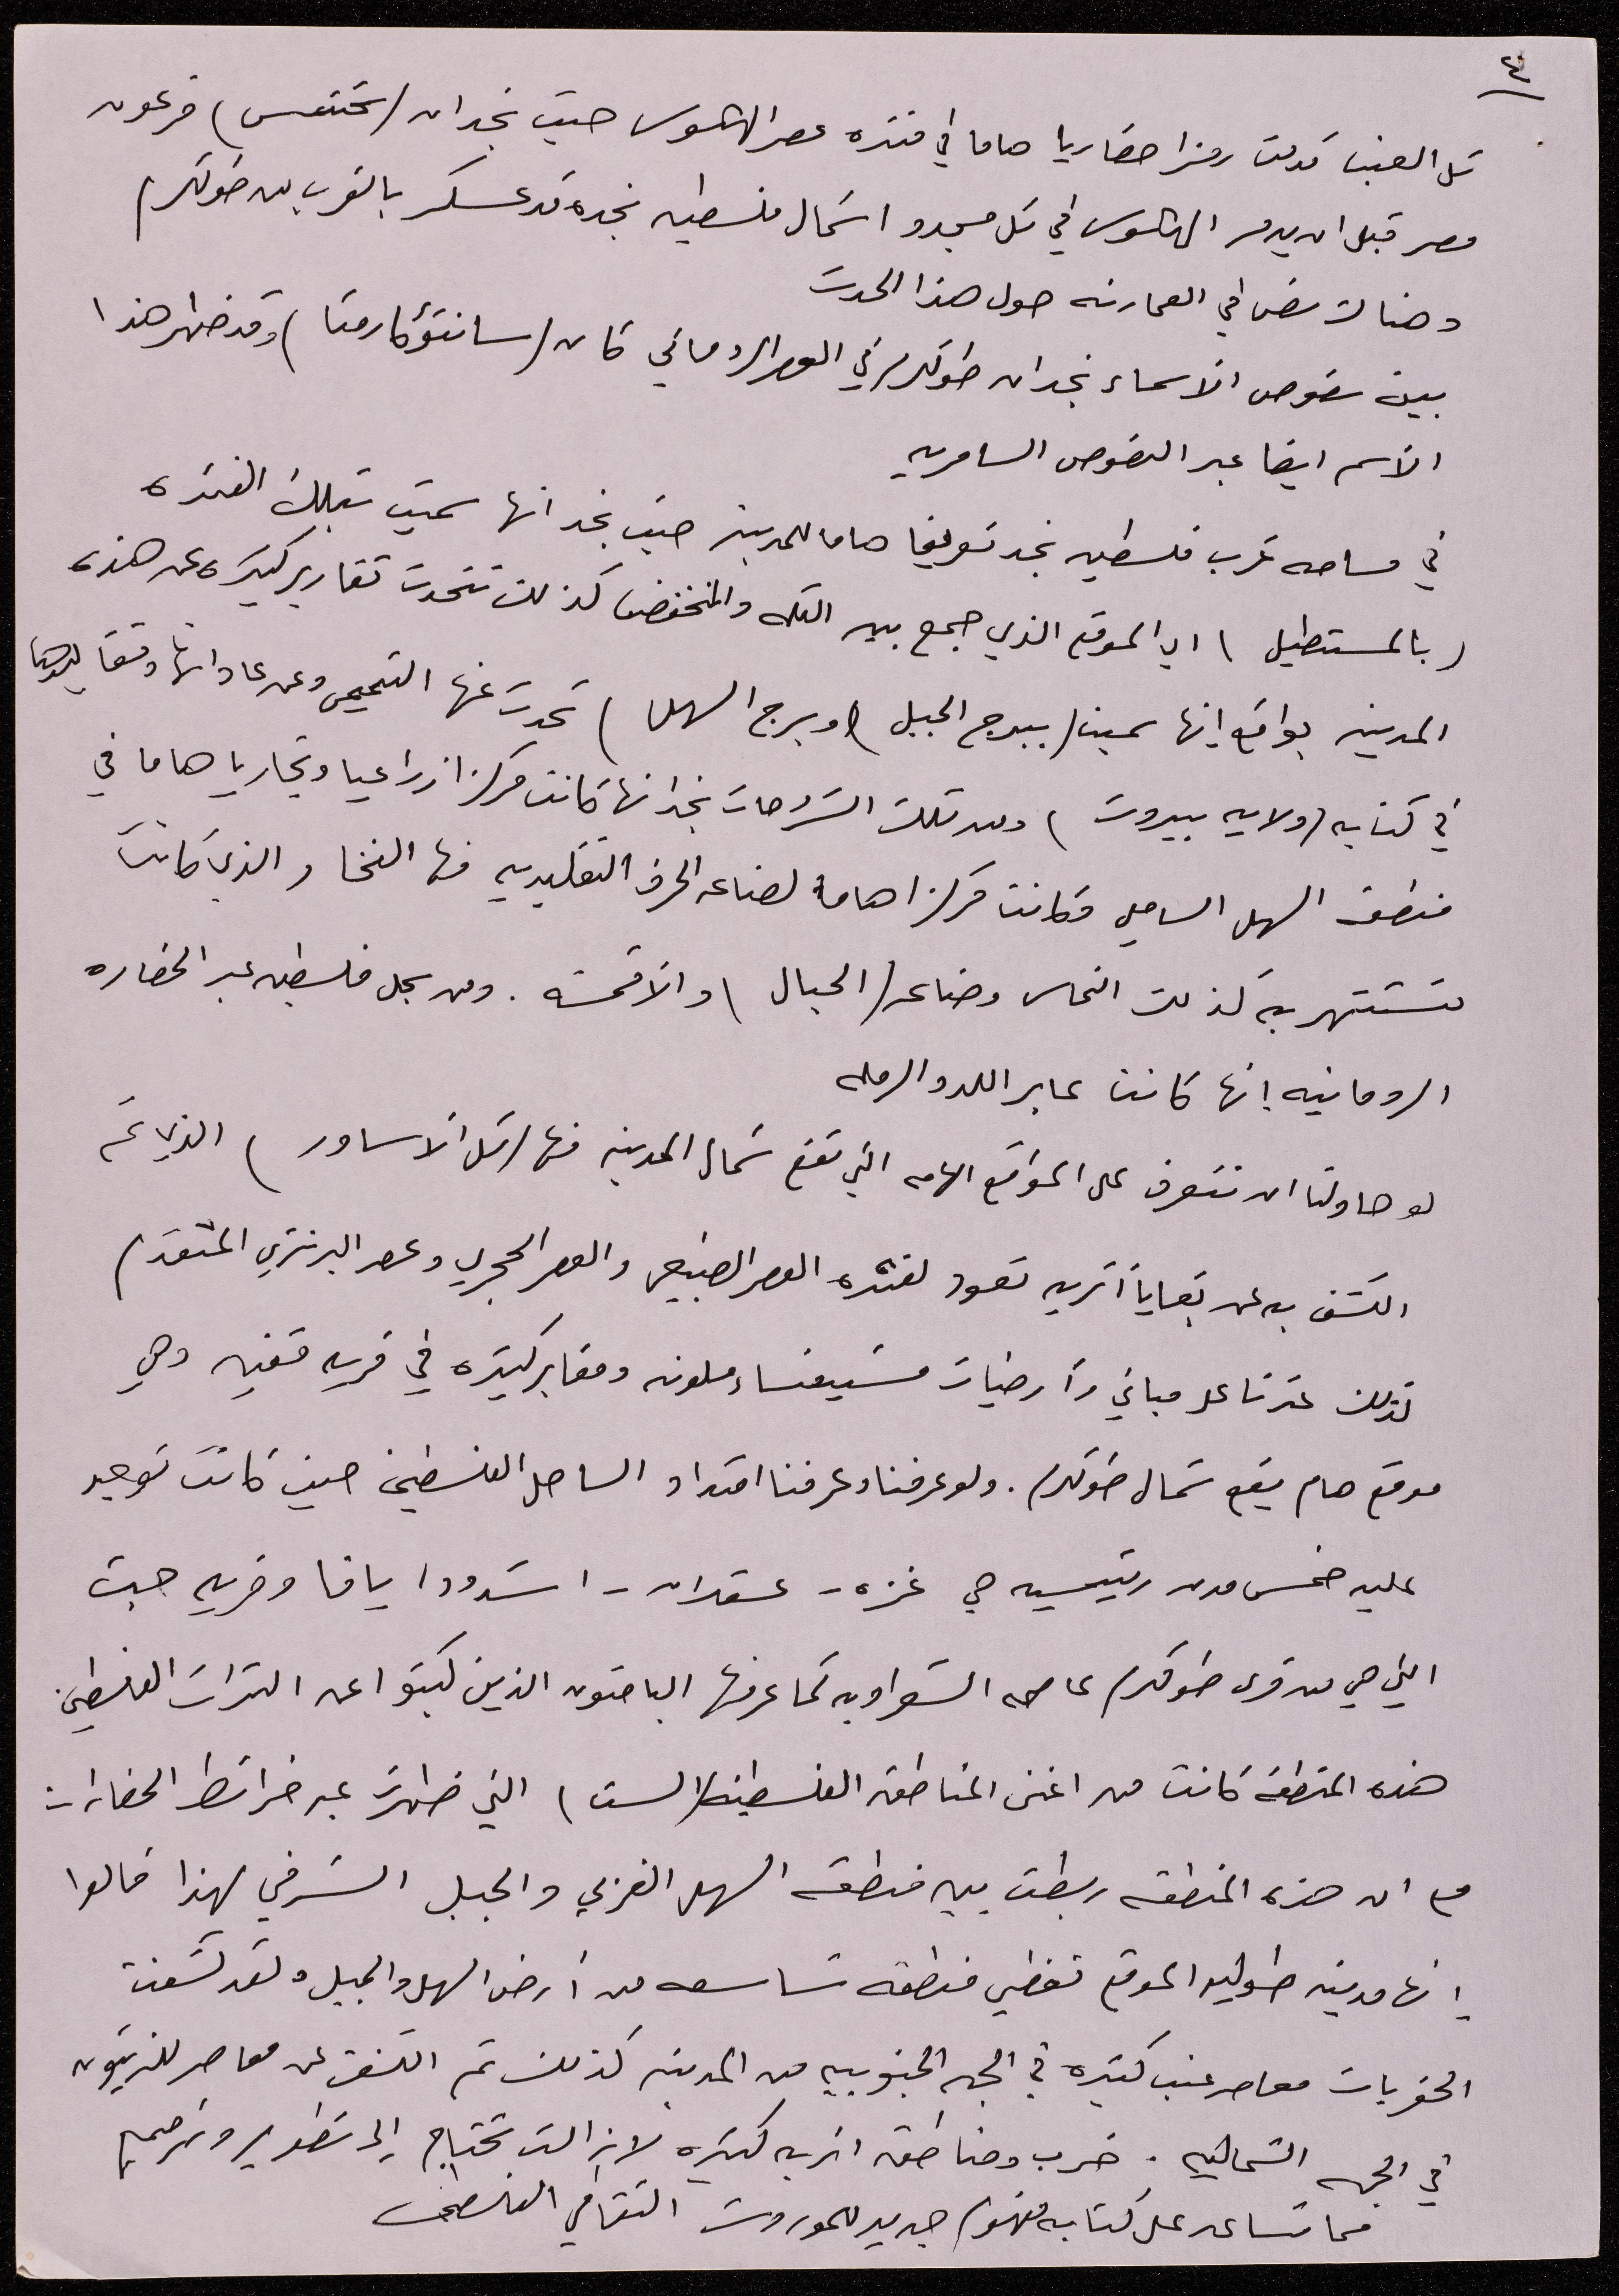 ٤
تل العنب كونت رمزا حضاريا هاما في فتره عصر الهكسوس حيث نجد ان (تحتمس) فرعون
مصر قبل ان يدمر الهكسوس في تل مجدو اشمال فلسطين نجده قد عسكر بالقرب من طولكرم
وهناك نص في العمارنه حول هذا الحدث
بين نصوص الاسماء نجد ان طولكرم في العصر الروماني كان (سانتؤكارمتا) وقد ظهر هذا
الاسم ايضا عبر النصوص السامريه
في مساحه غرب فلسطين نجد تعريفا هاما للمدينه حيث نجد انها سميت بتلك الفتره
(بالمستطيل) اي الموقع الذي جمع بين التله والمنخفض كذلك تتحدث تقارير كثيره عن هذه
المدينه بواقع إنها سميت (ببرج الجبل) (وبرج السهل) تحدث عنها التميمي وعن عاداتها وتقاليدها
في كتابه (ولايه بيروت) ومن تلك الشروحات نجد انها كانت مركزا زراعيا وتجاريا هاما في
منطقة السهل الساحلي وكانت مركزا هاما لصناعه الحرف التقليديه منها الفخار والذي كانت
تشتهر به كذلك النحاس وصناعه (الحبال) والاقمشه. ومن سجل فلسطين عبر الحضاره
الرومانيه إنها كانت عابر اللد والرمله
لو حاولنا ان نتعرف على المواقع الهامه التي تقع شمال المدينه منها (تل الاساور) الذي تم
الكشف به عن بقايا أثريه تعود لفتره العصر الطبيعي والعصر الحجري وعصر البرنزي المتقدم
كذلك عثرنا على مباني وأرضيات فسيفساء ملونه ومقابر كثيره في قريه قفين وهي
موقع هام يقع شمال طولكرم. ولو عرفنا وعرفنا امتداد الساحل الفلسطيني حيث كانت توجد
عليه خمس مدن رئيسيه هي غزه - عسقلان - اسدود ا يافا وقريه جت
التي هي من قرى طولكرم عاصمه الشعراويه كما عرفها الباحثون الذين كتبوا عن التراث الفلسطيني
هذه المنطقه كانت من اغنى المناطق الفلسطينيه (الست) التي ظهرت عبر خرائط الحضارات
مع ان هذه المنطقه ربطت بين منطقه السهل الغربي والجبل الشرقي لهذا قالوا
إنها مدينه طوليه الموقع تغطي منطقه شاسعه من أرض السهل والجبل ولقد كشفت
الحفريات معاصر عنب كثيره في الجهه الجنوبيه من المدينه كذلك تم الكشف عن معاصر للزيتون
في الجهه الشماليه. خرب ومناطق اثريه كثيره لازالت تحتاج إلى تطوير وترميم
مما تساعد على كتابه مفهوم جديد للموروث الثقافي الفلسطيني